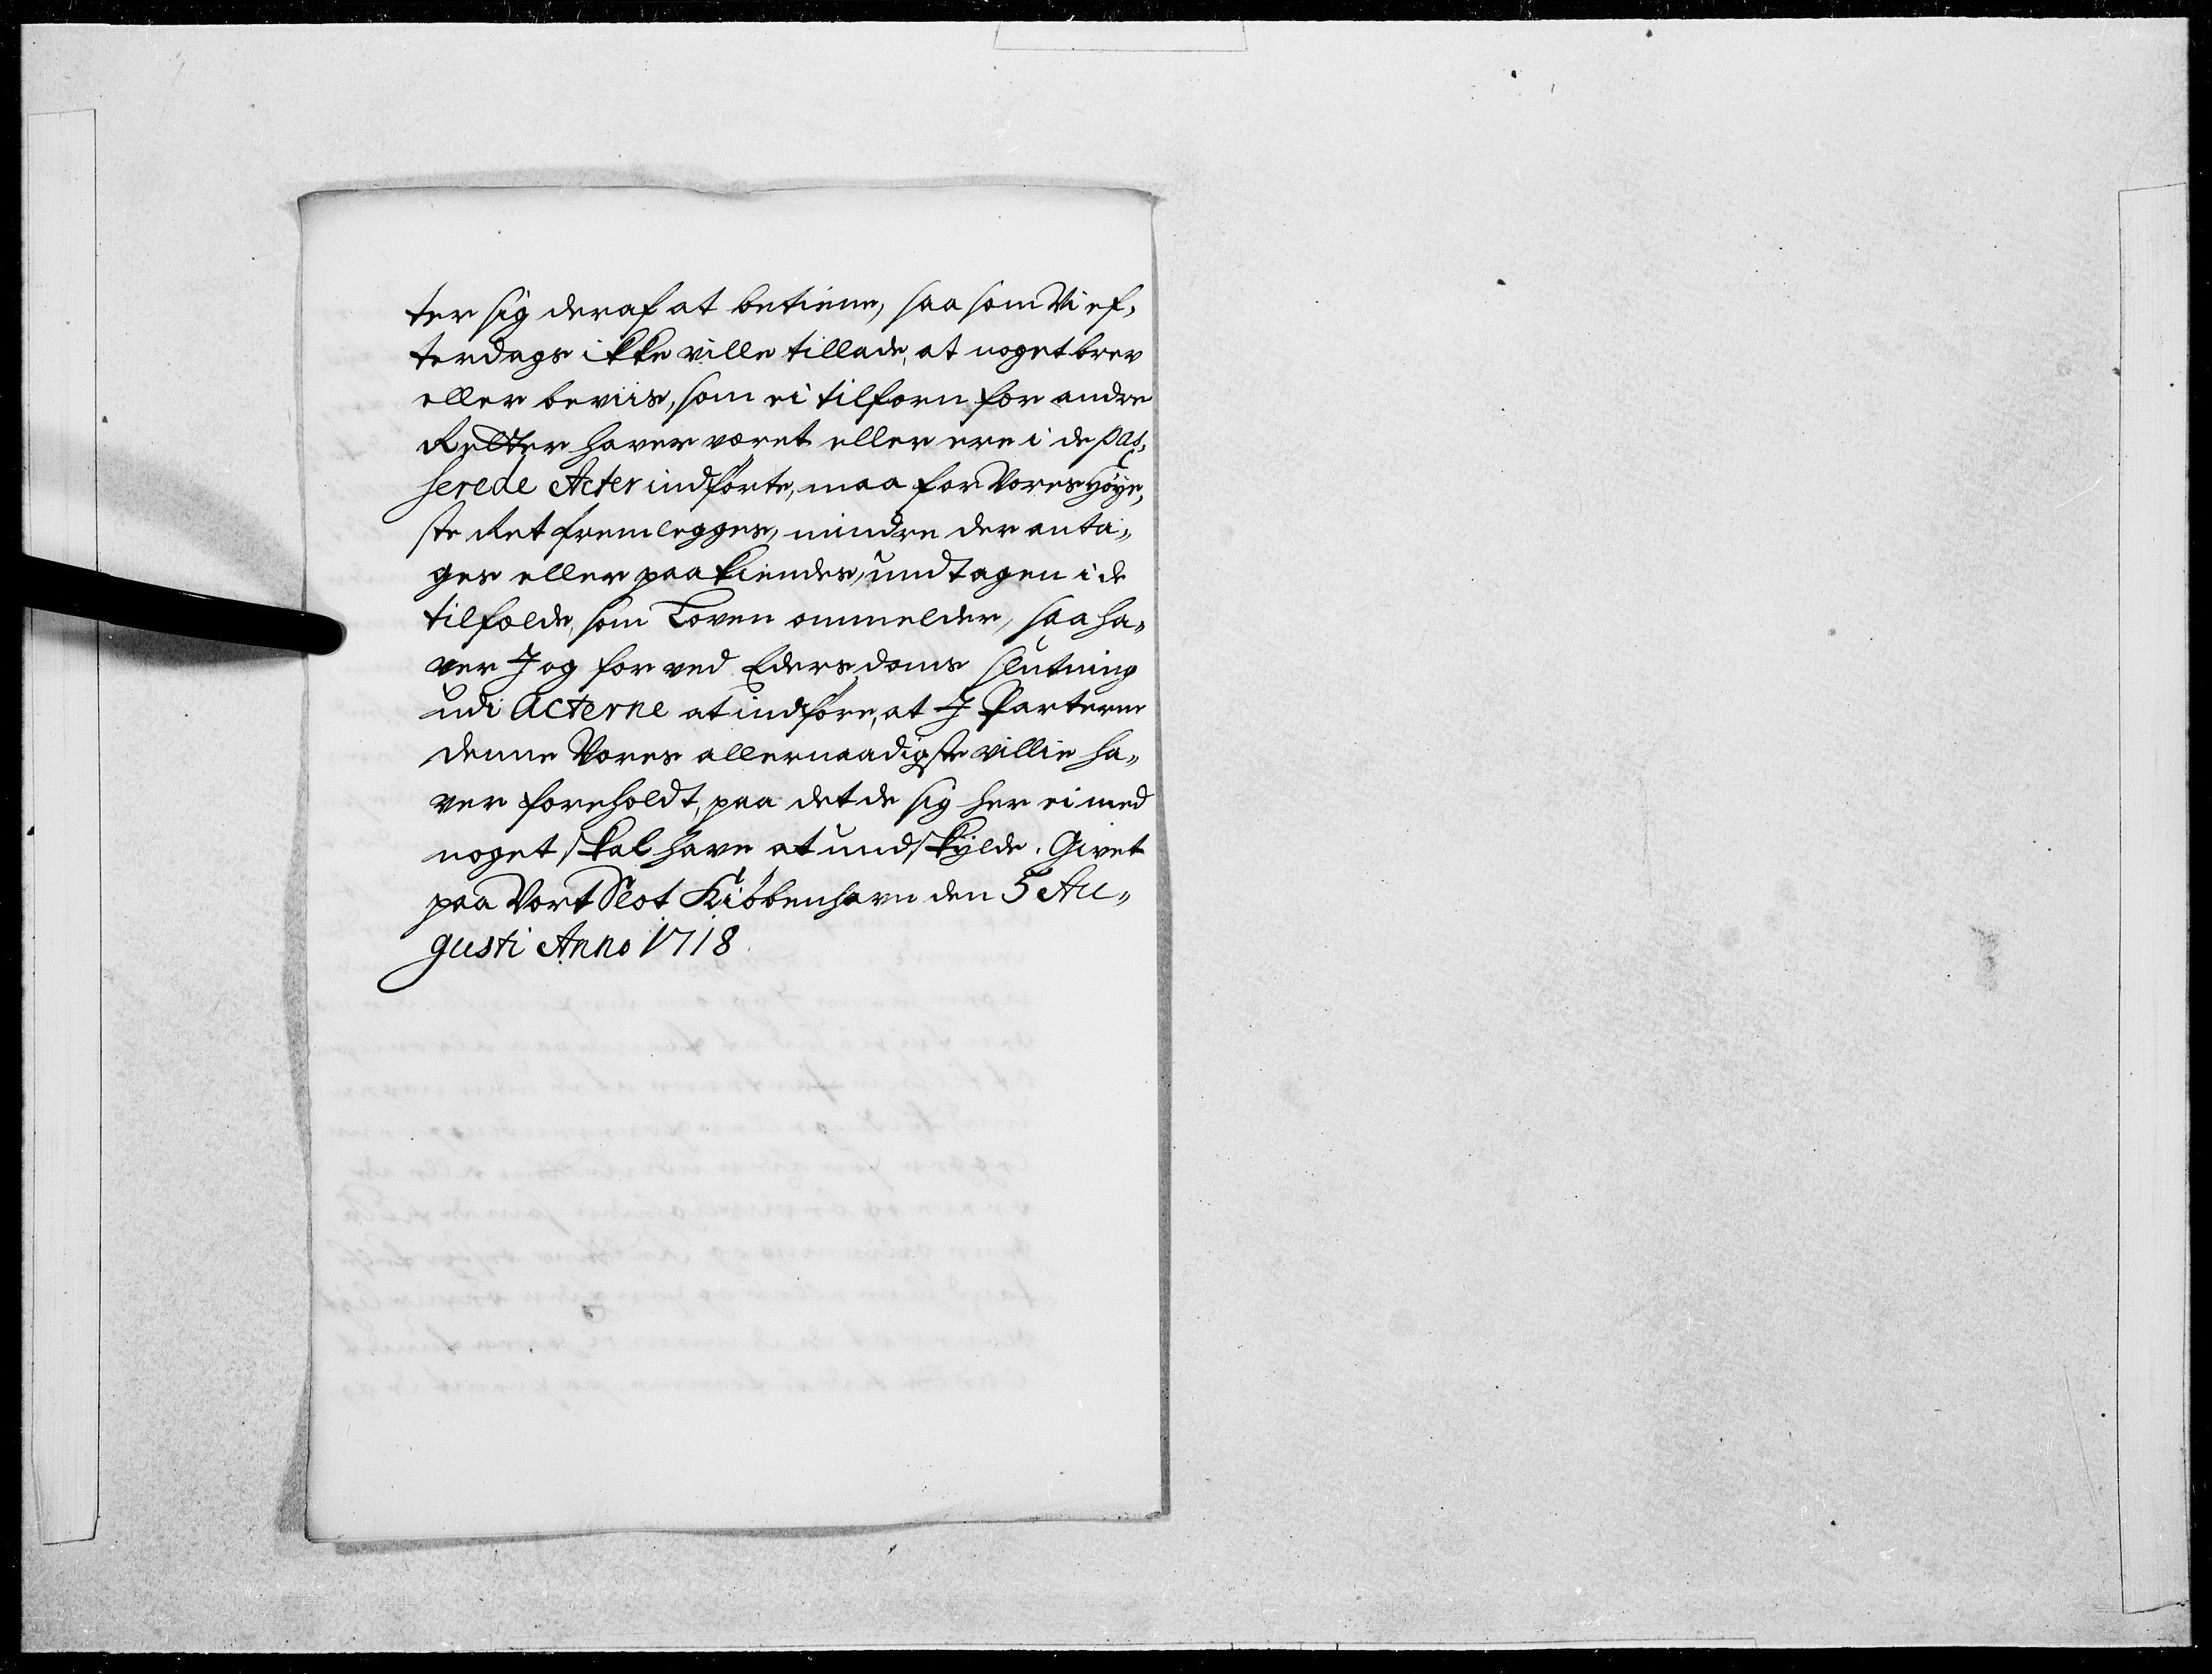 ter sig deraf at betiene, saa som Vi ef,
terdags ikke ville tillade, at noget brev
eller beviis, som ei tilforn for andre
Retter haver været eller ere i de pas,
serede Acter indførte, maa for Vores Høye,
ste Ret fremlegges, mindre der anta,,
ges eller paakiendes, undtagen i de
tilfælde, som Loven ommelder, saa ha,,
ver J og for ved Eders doms slutning
udi Acterne at indføre, at J Parterne
denne Vores allernaadigste villie ha,,
ver foreholdt, paa det de sig her ei med
noget skal have at undskylde. Givet
paa Vort Slot Kiöbenhavn den 5 Au,,
gusti Anno 1718